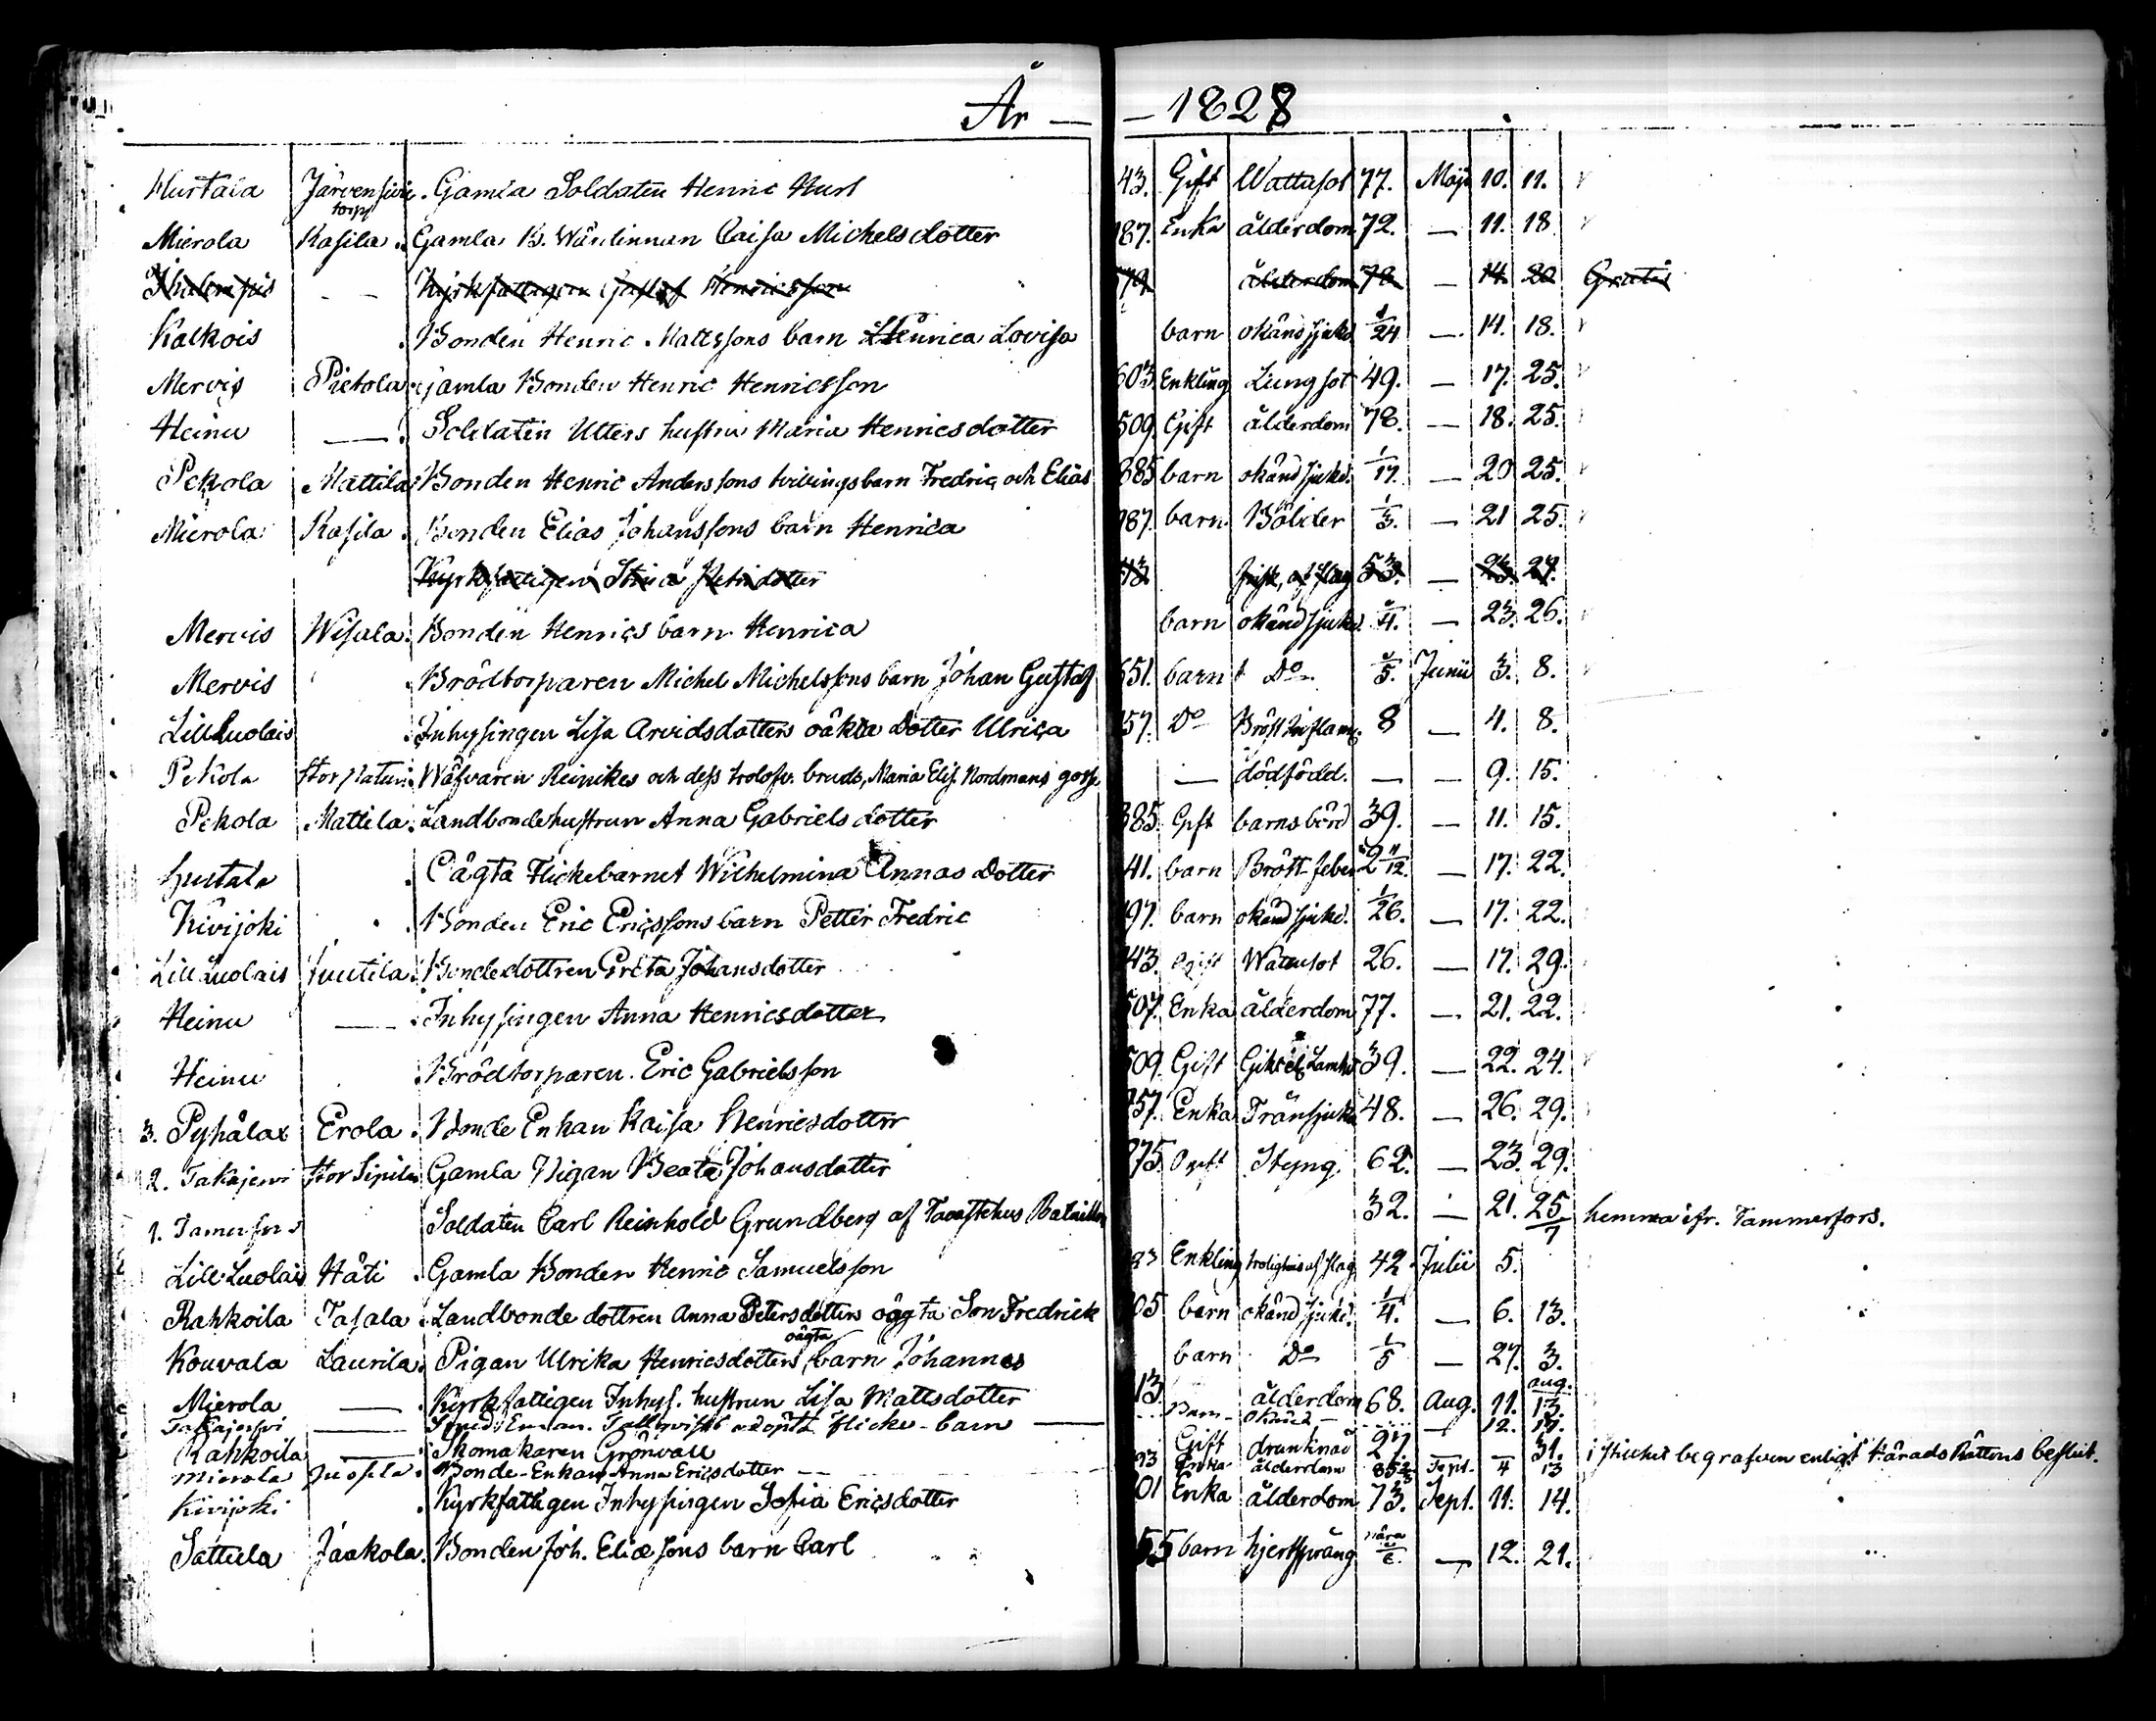 År — — 1828
Hurtala Järvensivu torp Gamla Soldaten Henric Hurl 43. Gift Wattusot 77. Maji 10. 11.
Mierola Rasila. Gamla B. Wärdinnan Caisa Michelsdotter 187. Enka ålderdom 72. — 11. 18.
— Kyrkfattigen Gustaf Henricsson 579 ålderdom 78 — 14. 20 Gratis
Kalkois Bonden Henric Mattssons barn Henrica Lovisa barn okänd sjukd. 1/24 — 14. 18.
Mervis Pietola gamla Bonden Henric Henricsson 603. Enkling Lungsot 49. — 17. 25.
Heinu — Soldaten Utters hustru Maria Henricsdotter 509. Gift ålderdom 78. — 18. 25.
Pekola Mattila Bonden Henric Anderssons tvillingsbarn Fredric och Elias 385 barn okänd sjukd. 1/17. — 20 25.
Mierola Rasila. Bonden Elias Johanssons barn Henrica 187. barn Bölder 1/3. — 21 25.
Kyrkfattigen Stina Petri dotter 53. — 23. 27.
Mervis Wisala. Bonden Henrics barn Henrica barn okänd sjukd. 1/4. — 23. 26.
Mervis Brödtorparen Michel Michelssons barn Johan Gustaf 651. barn Do 1/5. Junii 3. 8.
Lill Luolais Inhysingen Lisa Arvidsdotters oäkta dotter Ulrica 157. Do Bröst Inflam. 8 — 4. 8.
Pekola Wäfvaren Reinikes och dess trolofv. bruds, Maria Elis. Nordmans goss — dödfödd. — — 9. 15.
Pekola Mattila. Landbondehustrun Anna Gabriels dotter 385. Gift barnsbörd 39. — 11. 15.
Hurtala Oägta Flickebarnet Wilhelmina Annas dotter 41. barn Bröst feber 2 11/12. — 17. 22.
Kivijoki Bonden Eric Ericssons barn Petter Fredric 197. barn okänd sjukd. 1/26. — 17. 22.
Lill Luolais Juutila. Bondedottren Greta Johansdotter 143. Ogift Wattusot 26. — 17. 29.
Heinu — Inhysingen Anna Henricsdotter 507. Enka ålderdom 77. — 21. 22.
Heinu Brödtorparen Eric Gabrielsson 509. Gift 39. — 22. 24.
3. Pyhälax Erola. Bonde Enkan Kaisa Henricsdotter 757. Enka Trånsjuka 48. — 26. 29.
2. Takajervi Stor Sipila Gamla Pigan Beata Johansdotter 275. Ogift Styng. 62. — 23. 29.
1. Soldaten Carl Reinhold Grundberg af Tavastehus Bataillon 32. — 21. 25/7 hemma ifr. Tammerfors.
Lill Luolais Häti. Gamla Bonden Henric Samuelsson Enkling troligtvis af slag 42 Julii 5.
Rahkoila Tasala. Landbonde dottren Anna Petersdotters oägta Son Fredrick 105 barn okänd sjukd. 1/4. — 6. 13.
Kouvala Laurila. Pigan Ulrika Henricsdotters oägta barn Johannes barn Do 1/5 — 27. 3. aug.
Mierola — Kyrkfattigen Inhys. hustrun Lisa Mattsdotter 13. ålderdom 68. Aug. 11. 13.
Takajervi — flicke-barn — barn — — 12. 17.
Rahkoila — Skomakaren Grönvall Gift drunknad 27. — — 31. i stillhet begrafven enligt Härads Rättens beslut.
Mierola Juosila. Bonde-Enkan Anna Ericsdotter Enka ålderdom Sept. 4 13
Kivijoki Kyrkfattigen Inhysingen Sofia Ericsdotter 01 Enka ålderdom 73. Sept. 11. 14.
Sattula Jaakola. Bonden Joh. Eliæ sons barn Carl 55 barn hjertsprång nära — 12. 21.